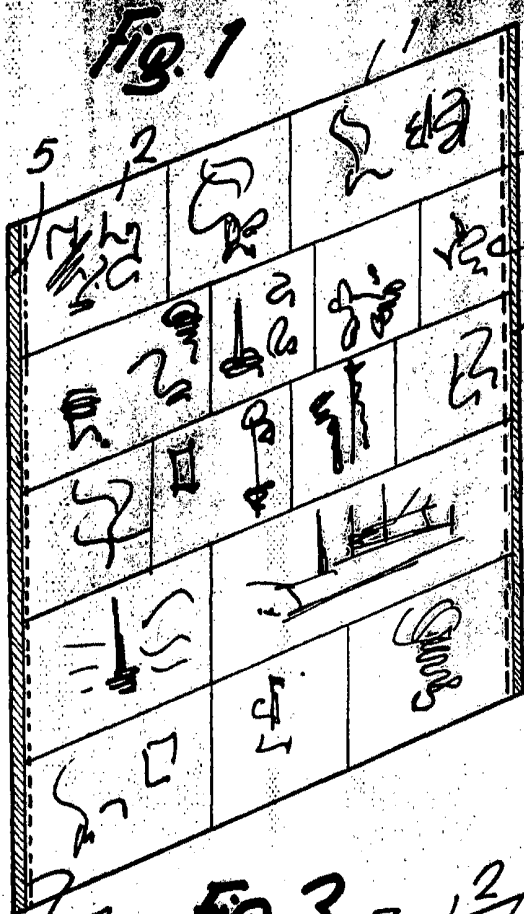 Fig. 1
1
5
2
Fig. 3
2